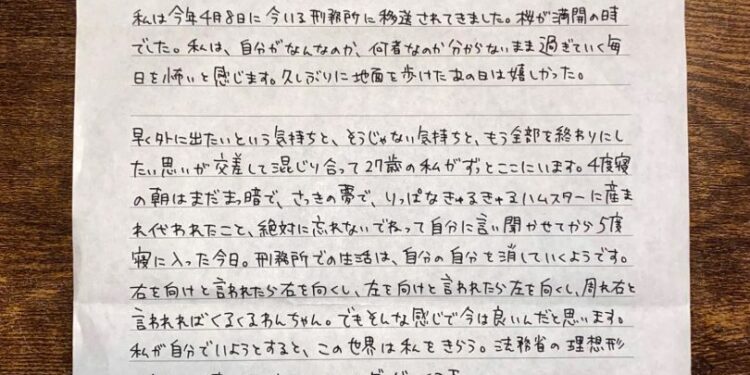 私は今年4月8日に今いる刑務所に移送されてきました。桜が満開の時
でした。私は、自分がなんなのか、何者なのか分からないまま過ぎていく毎
日を怖いと感じます。久しぶりに地面を歩けたあの日は嬉しかった。
早く外に出たいという気持ちと、そうじゃない気持ちと、もう全部を終わりにし
たい思いが交差して混じり合って27歳の私がずっとここにいます。4度寝
の朝はまだまっ暗で、さっきの夢で、りっぱなきゅるきゅるハムスターに産ま
れ代われたこと、絶対に忘れないでねって自分に言い聞かせてから5度
寝に入った今日。刑務所での生活は、自分の自分を消していくようです。
右を向けと言われたら右を向くし、左を向けと言われたら左を向くし、周れ右と
言われればくるくるわんちゃん。でもそんな感じで今は良いんだと思います。
私が自分でいようとすると、この世界は私をきらう。法務省の理想形